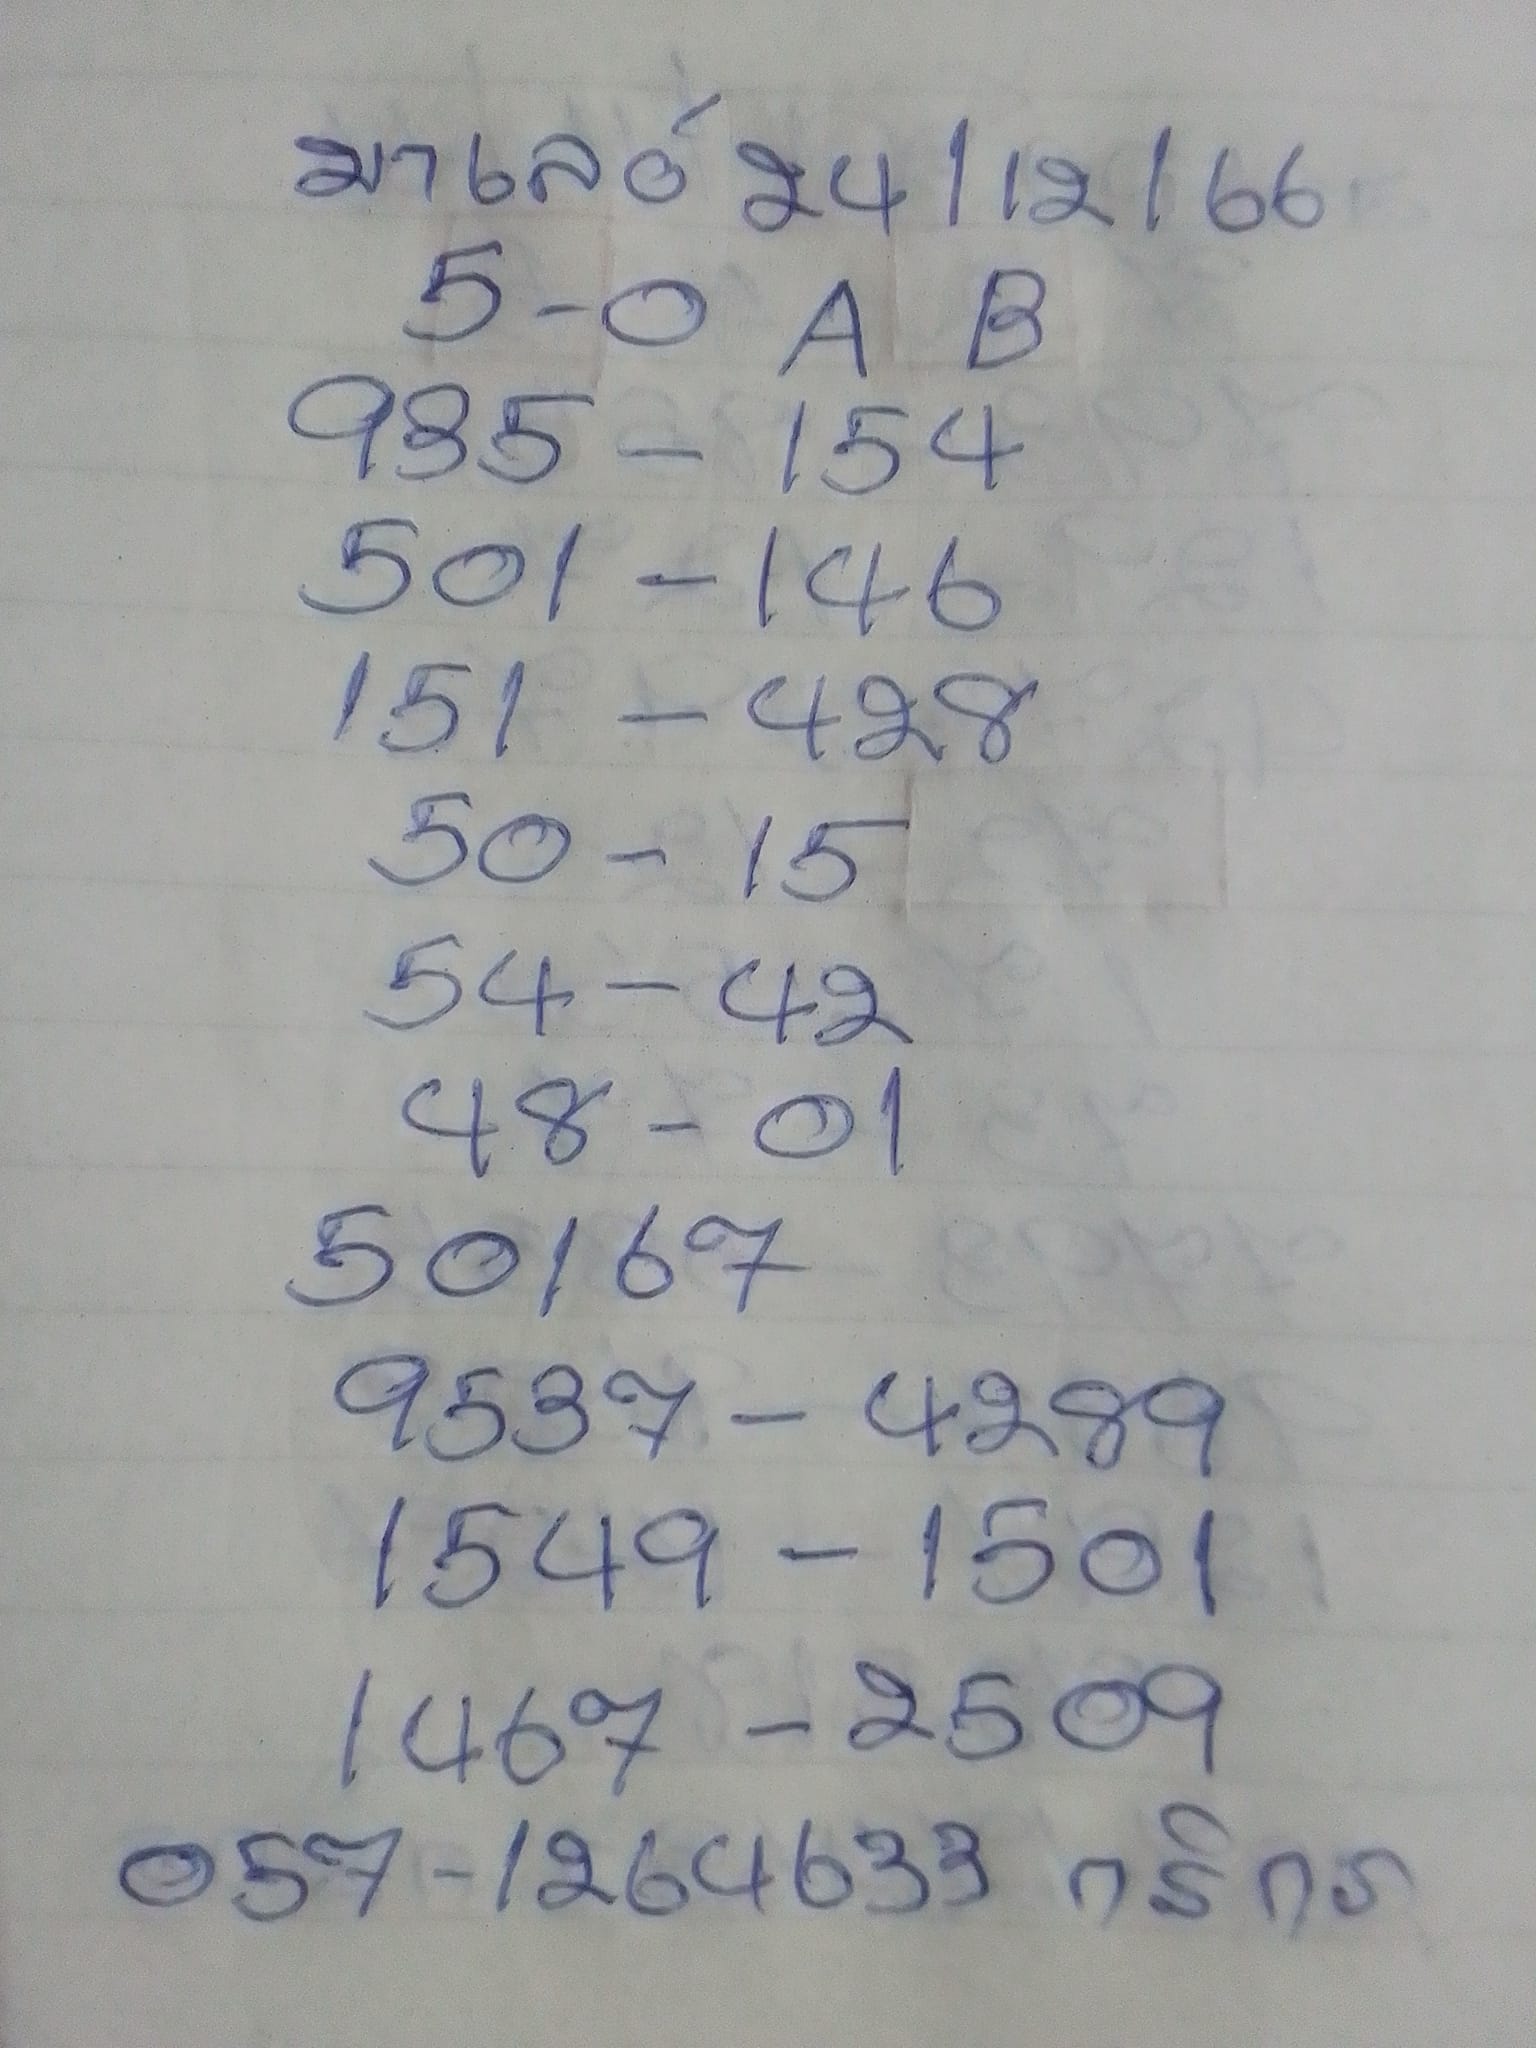 มาเลย์ 24/12/66
5-0 A B
935-154
501-146
151-428
50-15
54-42
48-01
50167
9537-4289
1549-1501
1467-2509
057-1264633